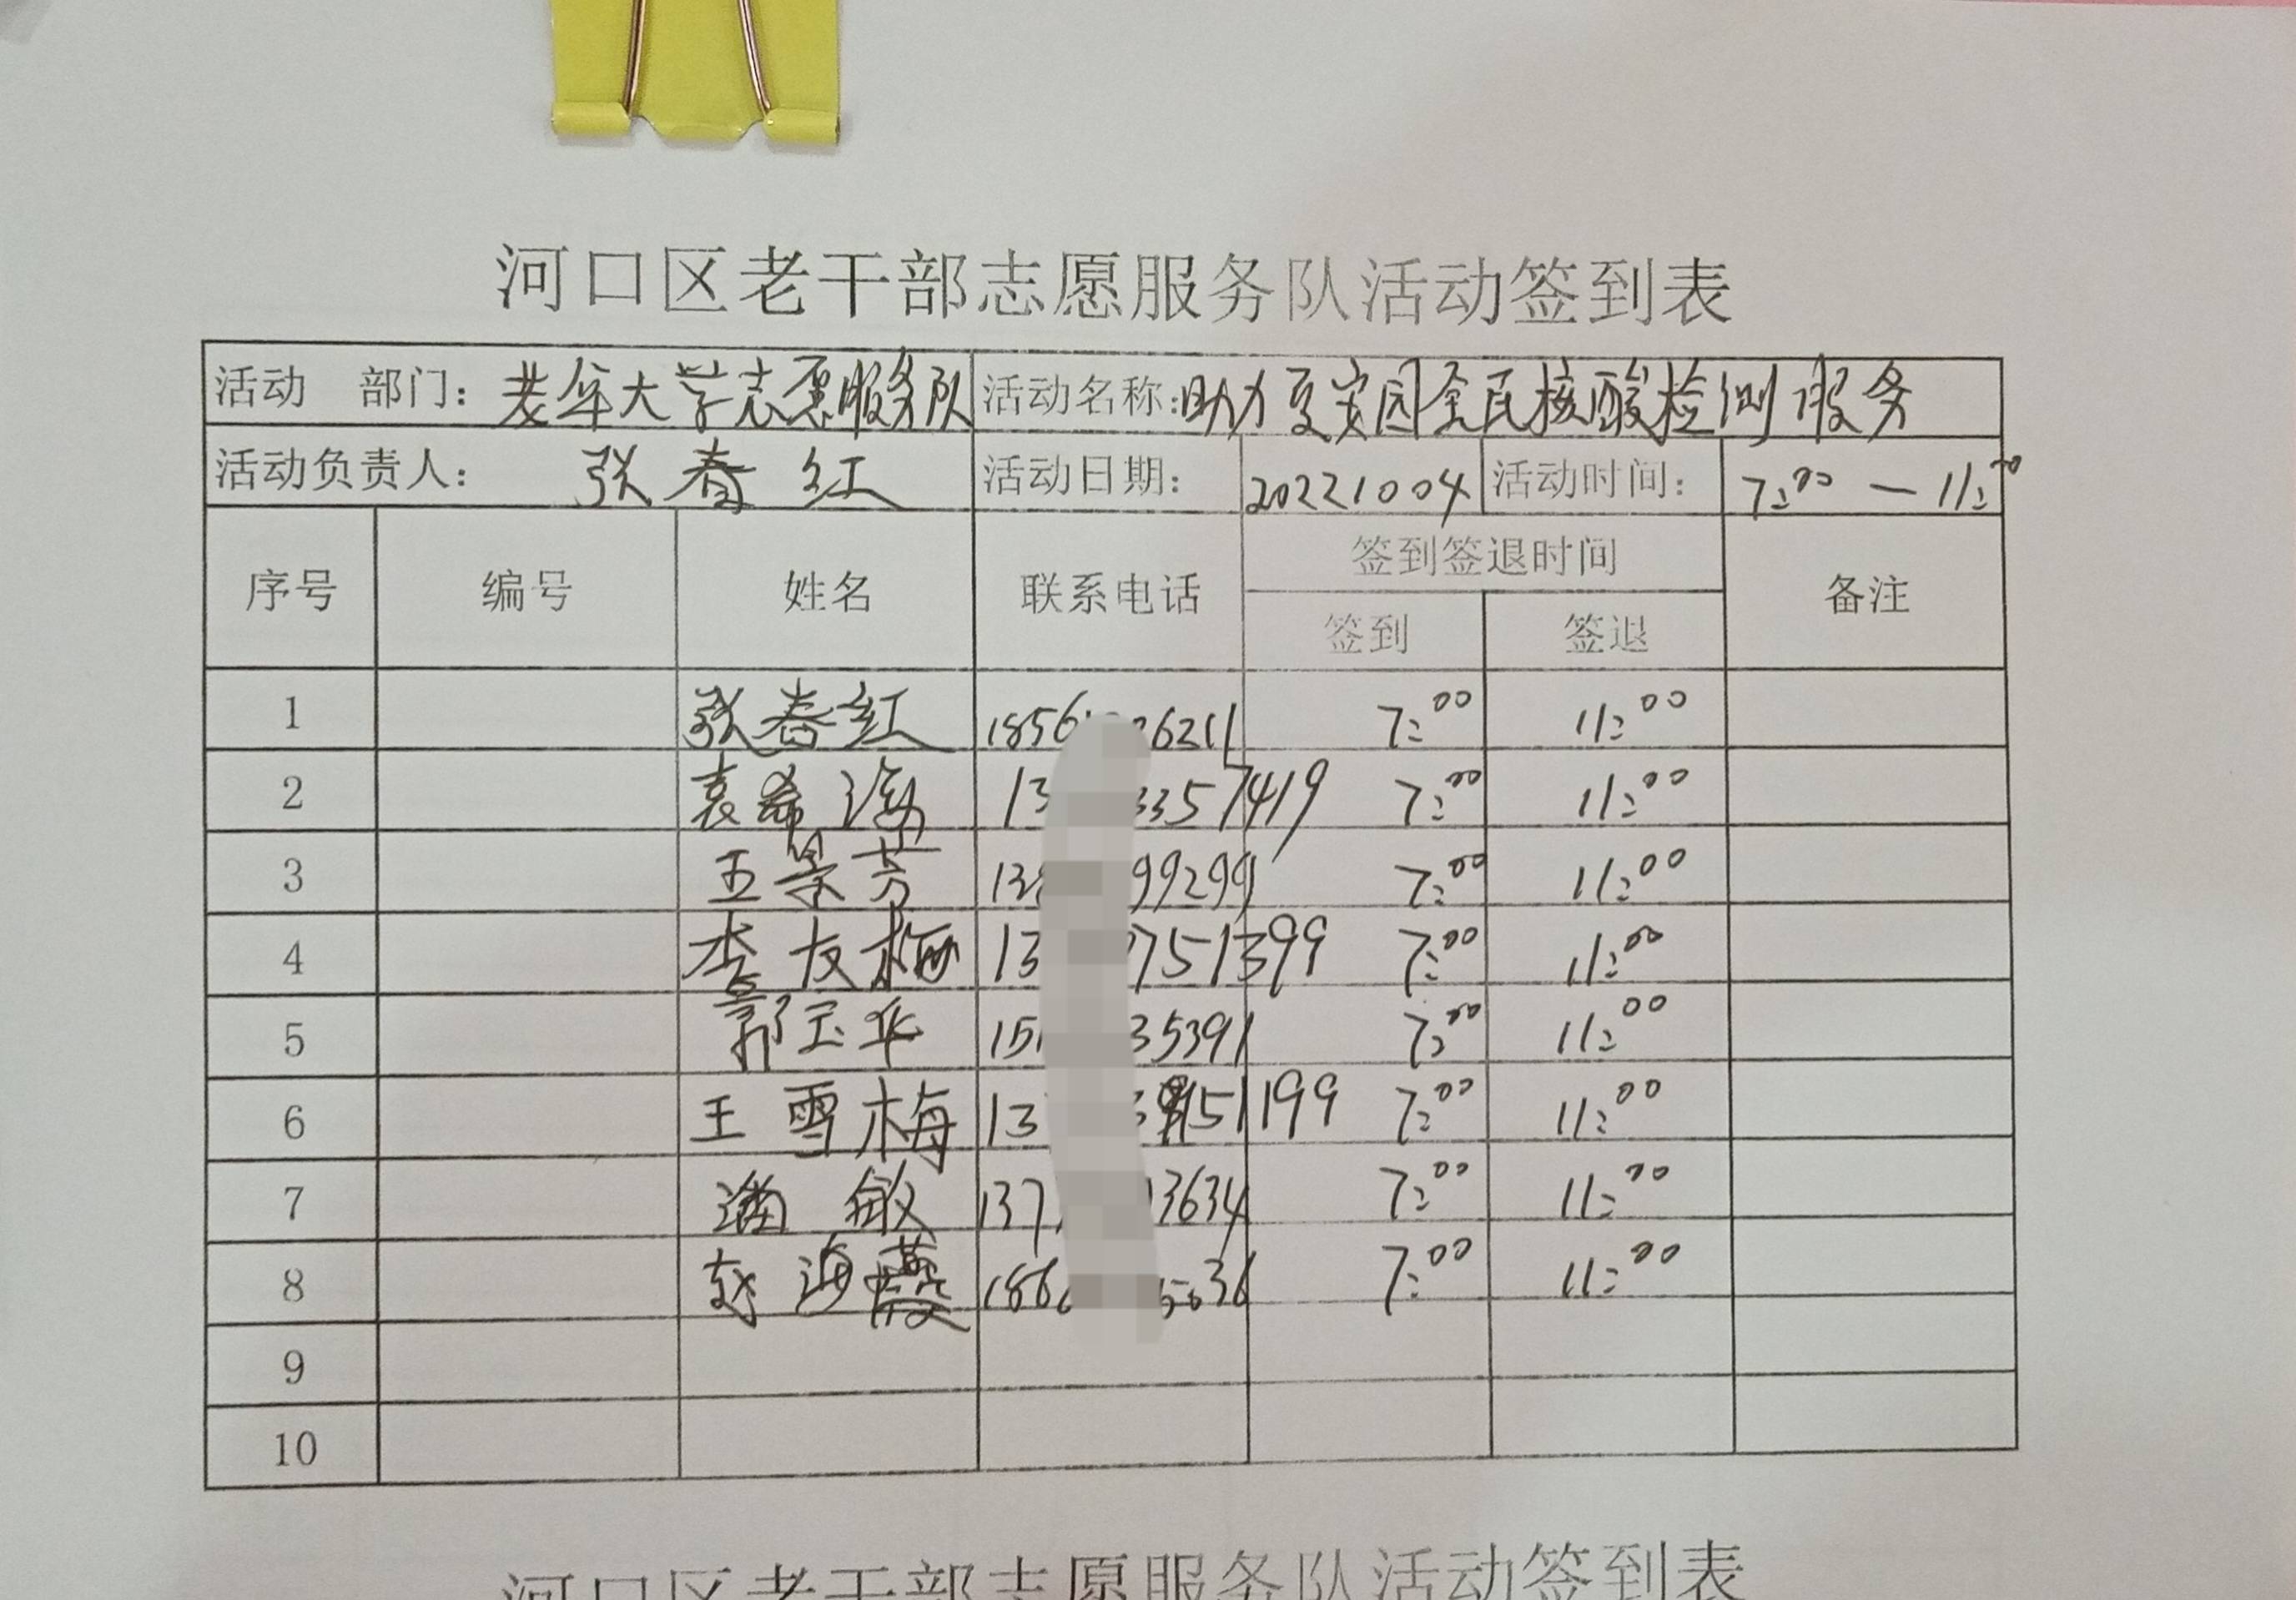 河口区老干部志愿服务队活动签到表
活动 部门：老年大学志愿服务队 活动名称：助力夏安园全民核酸检测服务
活动负责人： 张春红 活动日期： 20221004 活动时间： 7:00 — 11:00
序号 编号 姓名 联系电话 签到签退时间 备注
签到 签退
1 张春红 1856 26211 7:00 11:00
2 袁希海 13 3357419 7:00 11:00
3 王景芳 13 99299 7:00 11:00
4 李友梅 13 751399 7:00 11:00
5 郭宝华 15 35391 7:00 11:00
6 王雪梅 13 151199 7:00 11:00
7 潘敏 137 3634 7:00 11:00
8 赵海霞 186 36 7:00 11:00
9
10
河口区老干部志愿服务队活动签到表